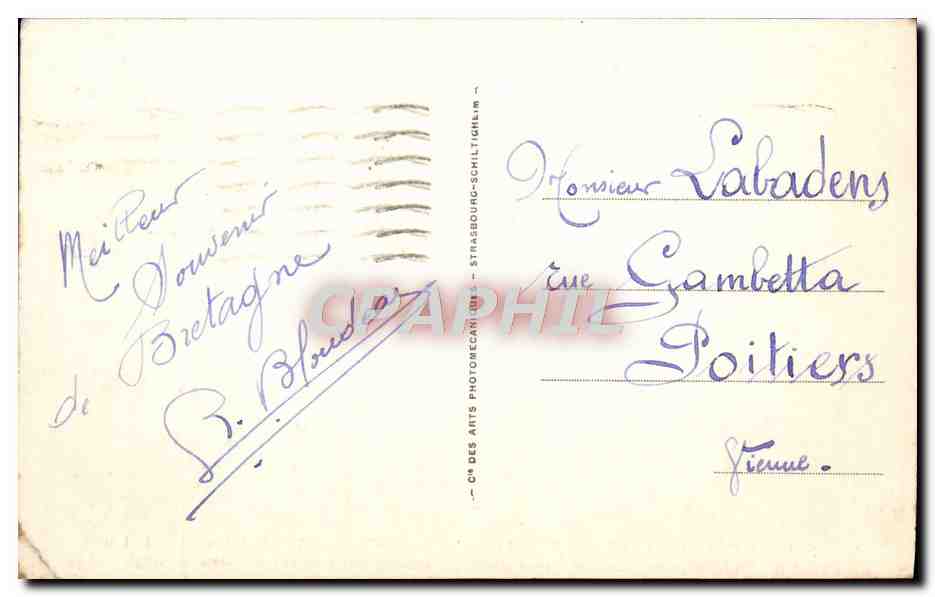 Meilleur
Souvenir
de Bretagne
- Cie DES ARTS PHOTOMECANIQUES - STRASBOURG-SCHILTIGHEIM -
Monsieur Labadens
rue Gambetta
Poitiers
Vienne.
CPAPHIL